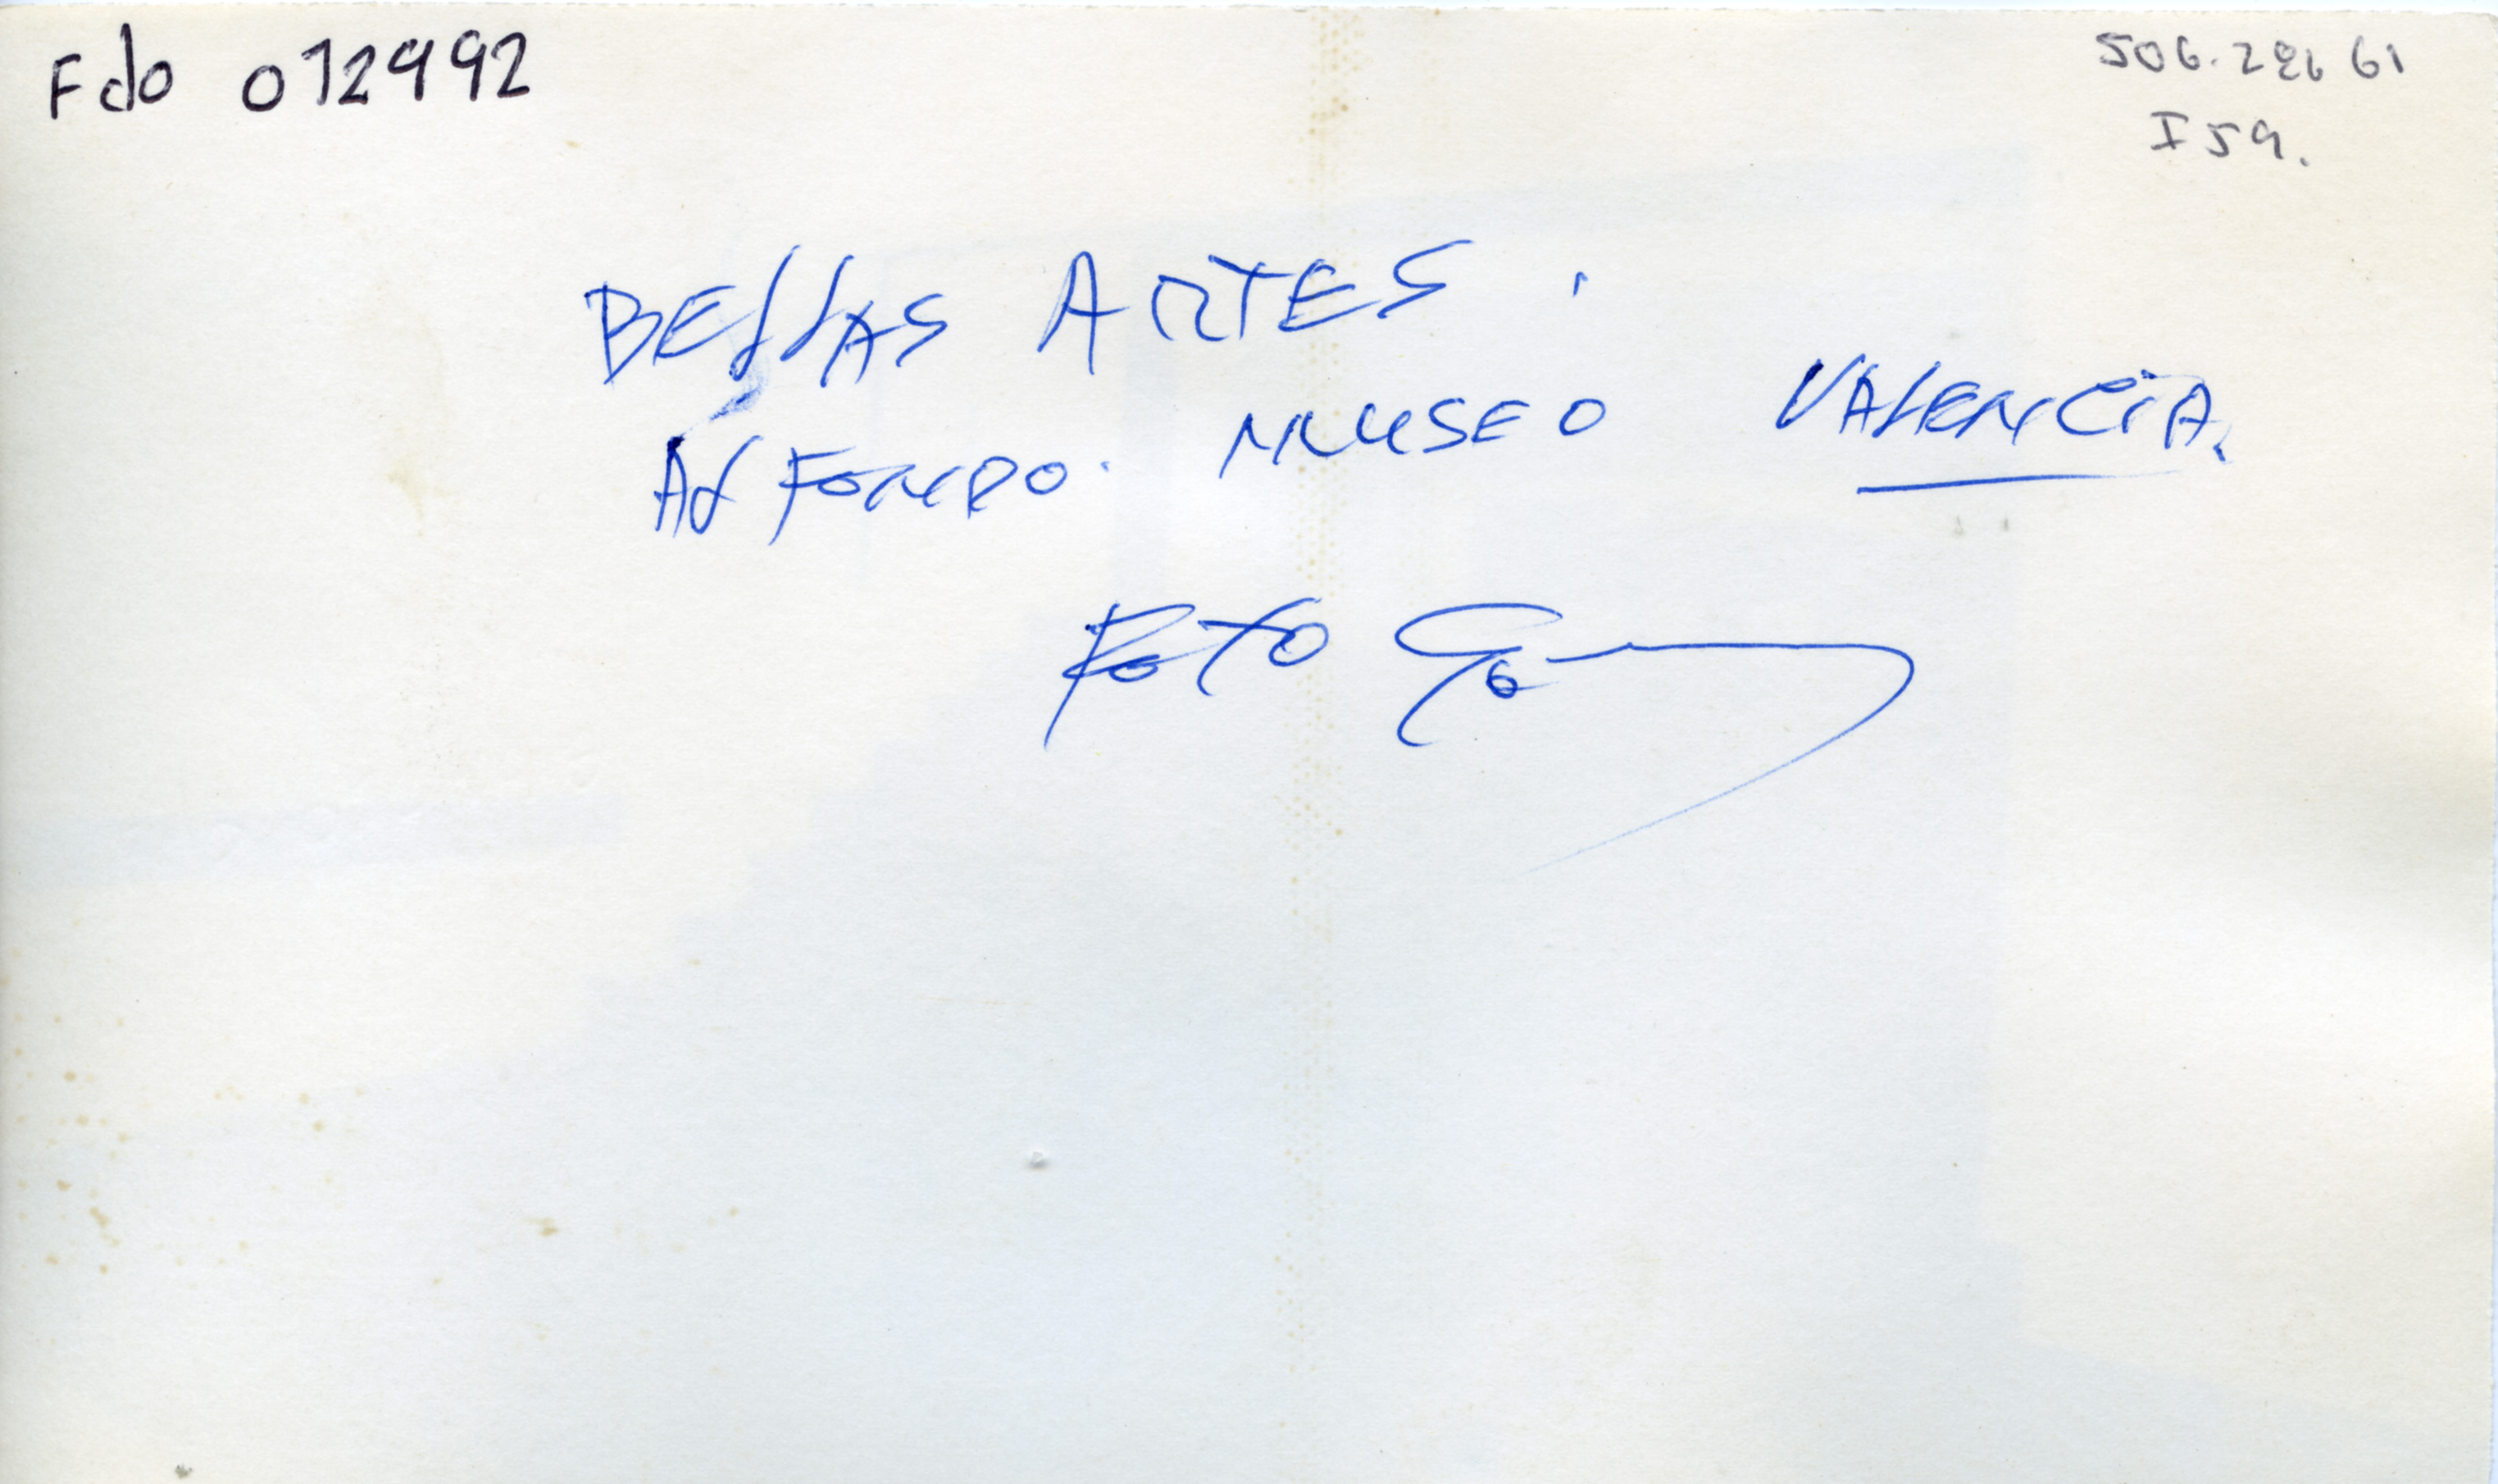 Fdo 012992
I 59.
BELLAS ARTES.
AL FONDO. MUSEO VALENCIA.
FOTO